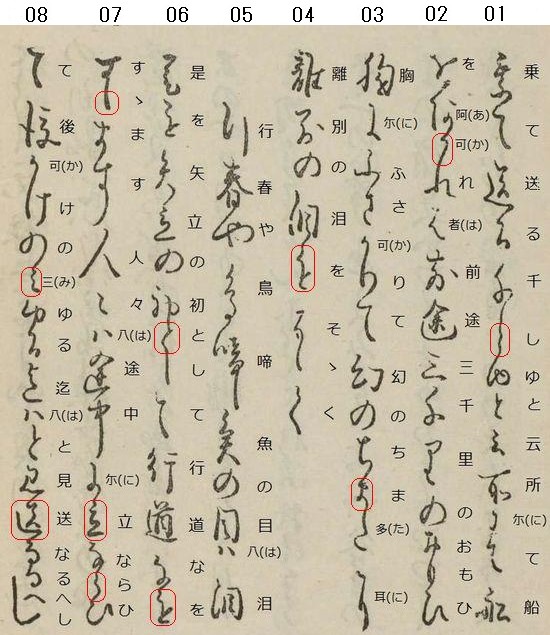 01 乗て送る千しゆと云所尓(に)て船
02 を阿(あ)可(か)れ者(は)前途三千里のおもひ
03 胸尓(に)ふさ可(か)りて幻のちま多(た)耳(に)
04 離別の泪をそゝく
05 行春や鳥啼魚の目八(は)泪
06 是を矢立の初として行道なを
07 すゝます人々八(は)途中尓(に)立ならひ
08 て後可(か)けの三(み)ゆる迄八(は)と見送なるへし